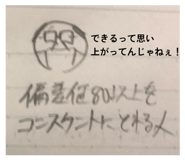 できるって思い
上がってんじゃねぇ！
偏差値80以上を
コンスタントにとれる人